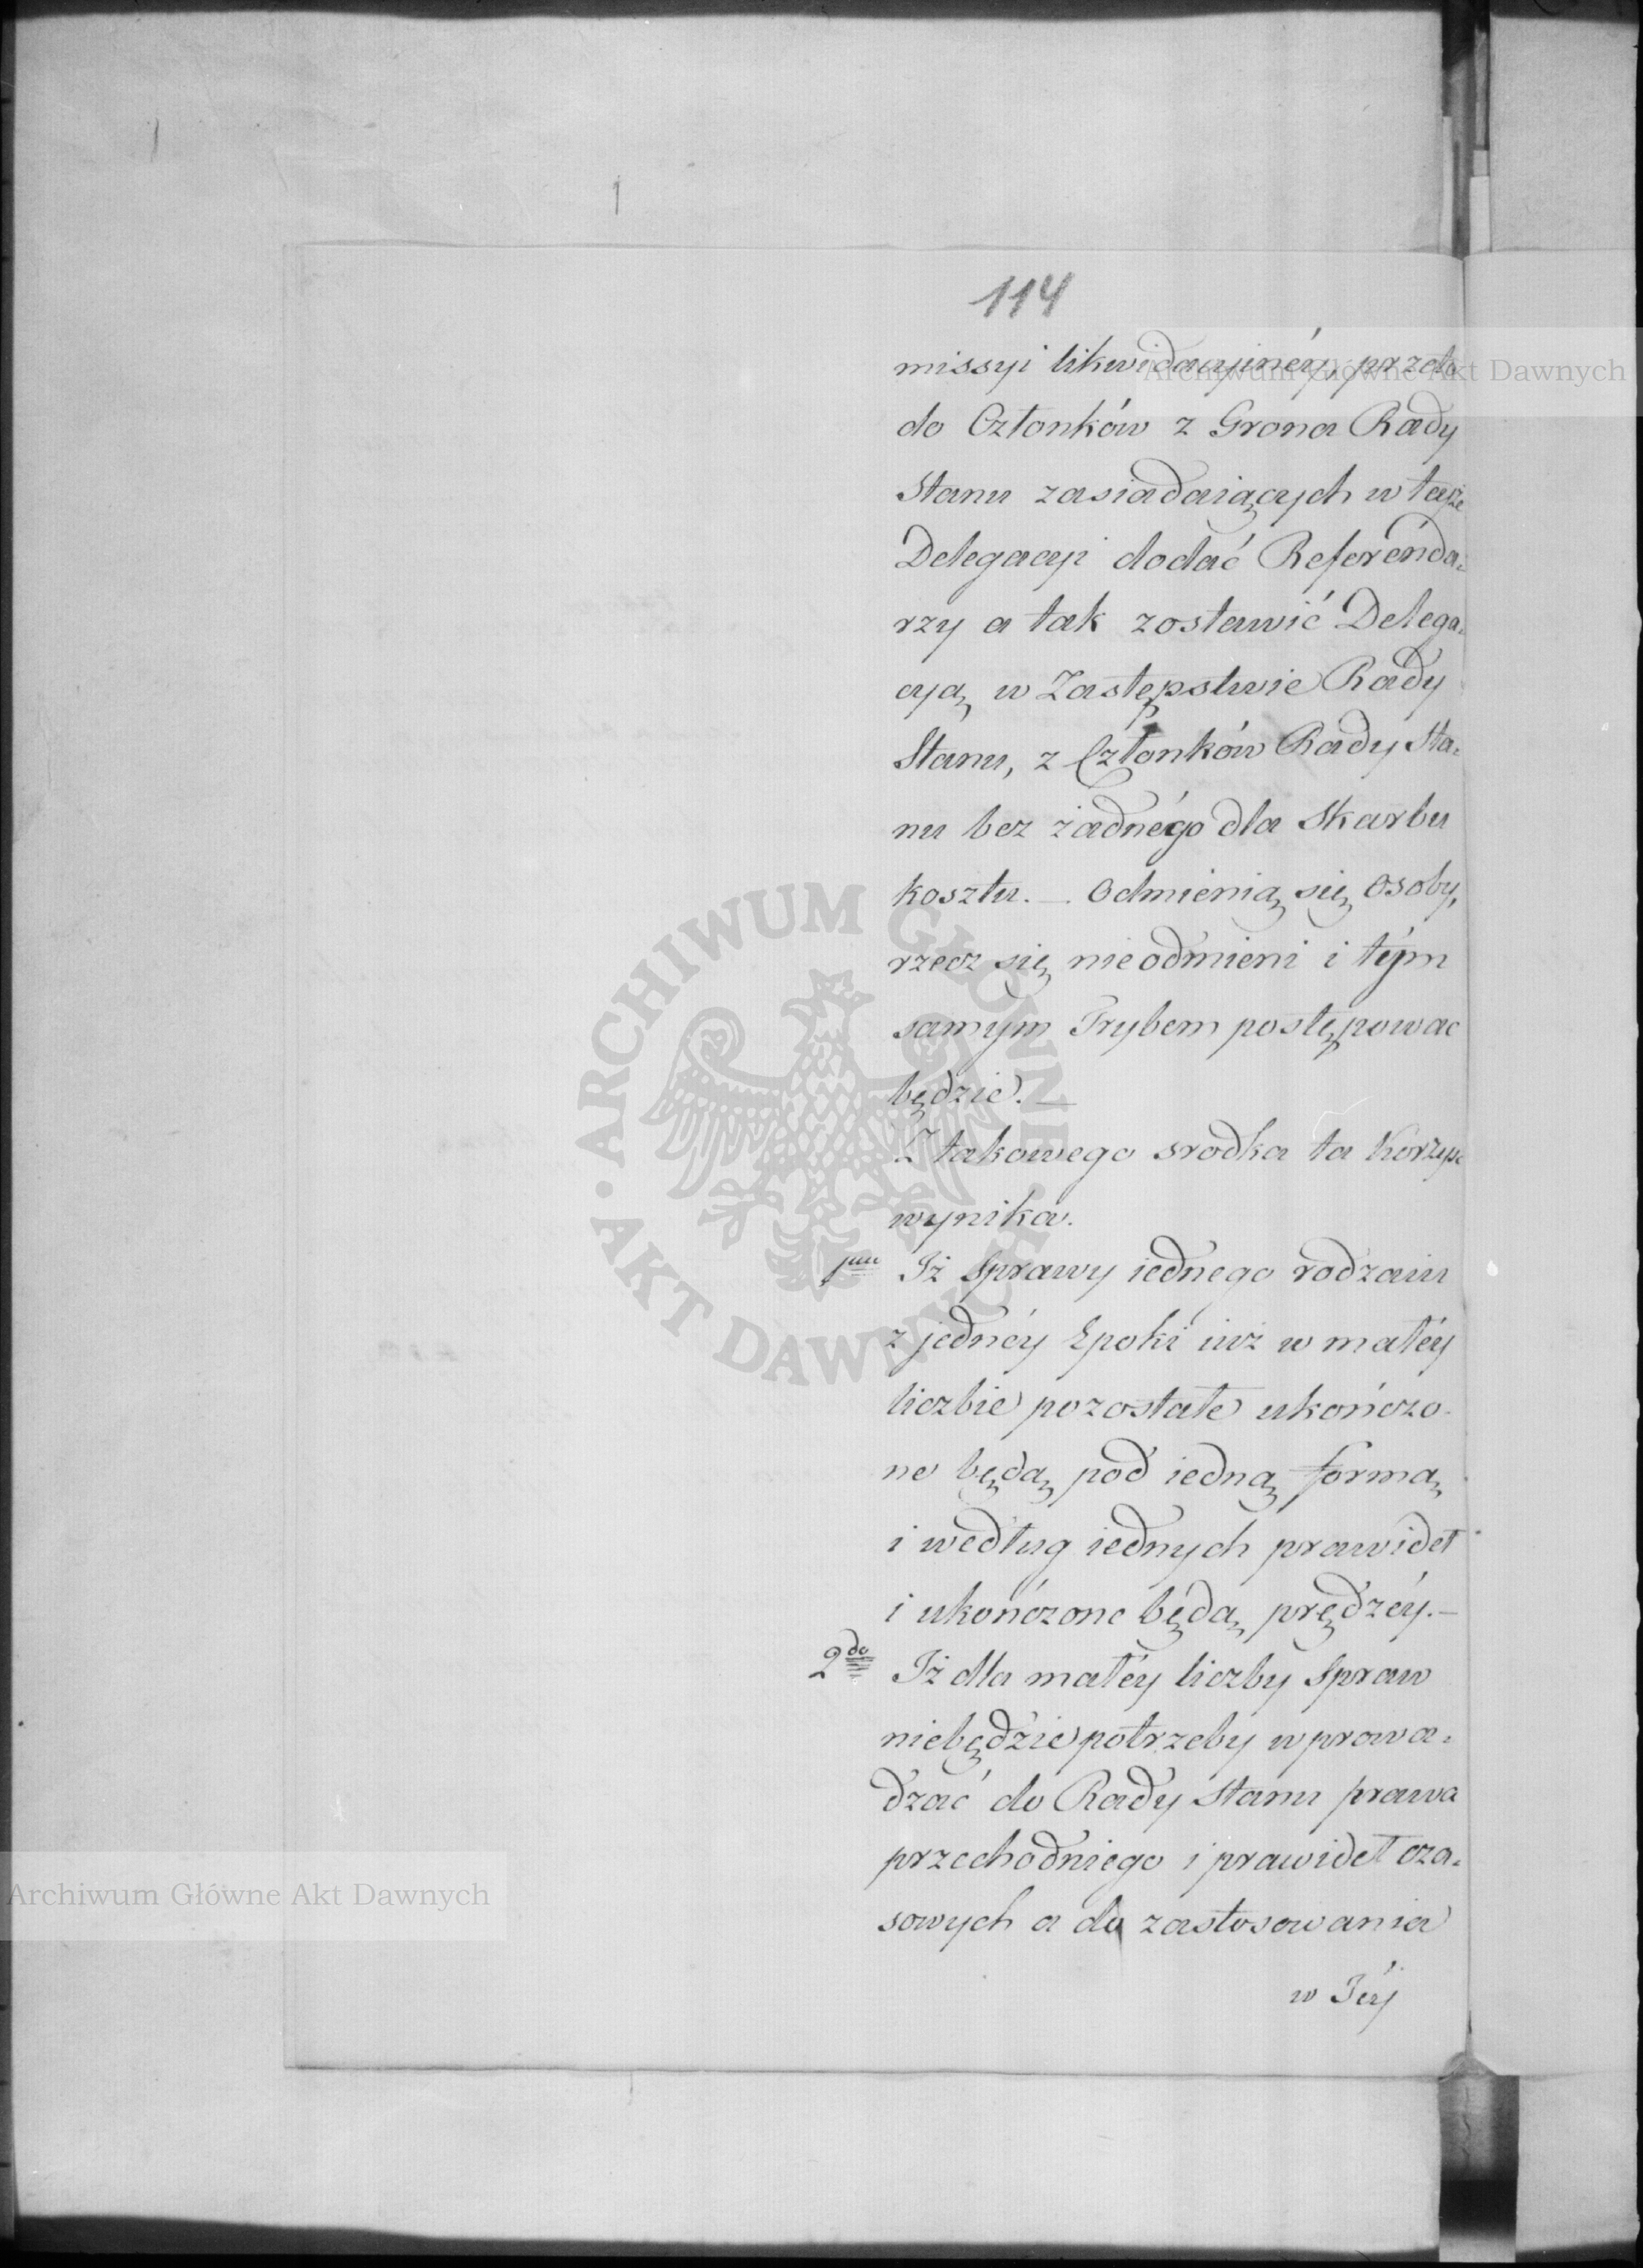 114
missyi likwidacyinéy, przeto
do Członków z Grona Rady
Stanu zasiadaiących w tejże
Delegacyi dodać Referénda=
rzy a tak zostawić Delega=
cyą w Zastępstwie Rady
Stanu, z Członków Rady Sta=
nu bez żadnégo dla Skarbu
kosztu. — Odmienią się osoby,
rzecz się nieodmieni i tym
samym Trybem postępowac
będzie. —
Z takowego srodka ta
wynika.
1mo Iż Sprawy iednego rodzaiu
z jednéy Epoki iuż w małéy
liczbie pozostałe ukończo-
ne będą pod iedną formą
i według iednych prawideł
i ukończone będą prędzéy. —
2do Iż dla małéy liczby Spraw
niebędzie potrzeby wprowa=
dzać do Rady Stanu prawa
przechodniego i prawideł cza=
sowych a do zastosowania
w Jéy
Archiwum Główne Akt Dawnych
ARCHIWUM GŁÓWNE
· AKT DAWNYCH ·
Archiwum Główne Akt Dawnych